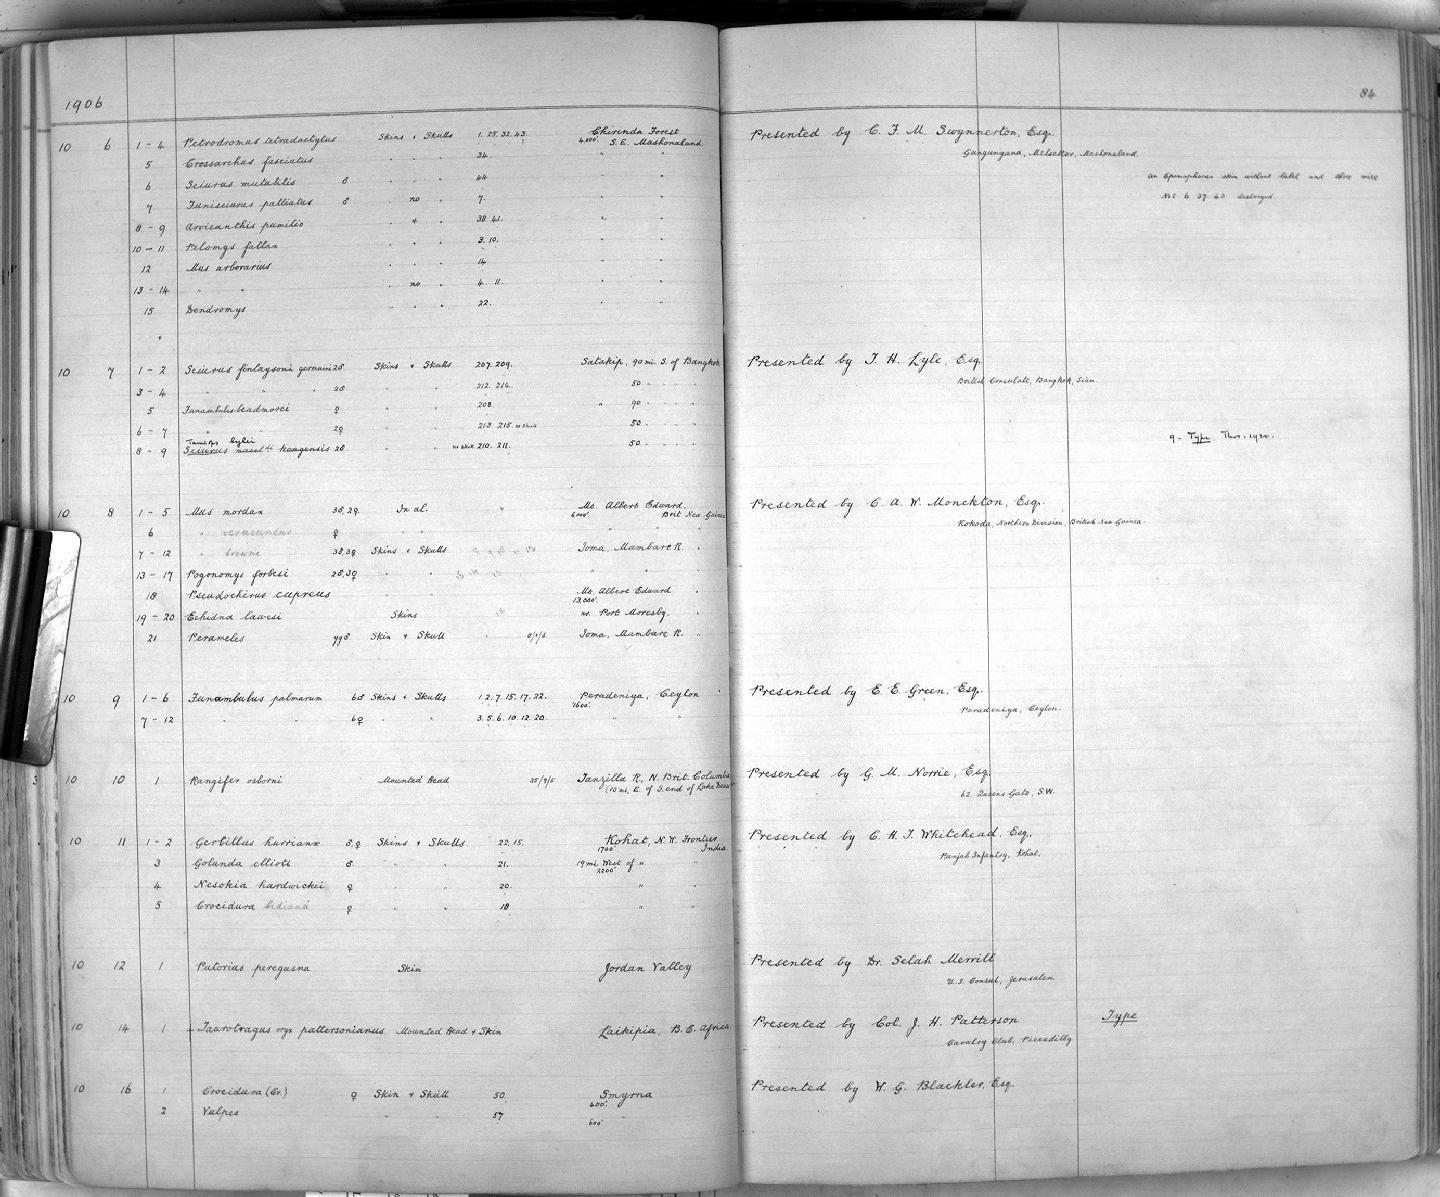 1906
84
10 6 1-4 Petrodromus tetradactylus Skins + Skulls 1. 25. 32. 43. Chirinda Forest Presented by C. F. M. Swynnerton, Esq.
4,000'. S. E. Mashonaland.
Gungungana, Melsetter, Mashonaland.
5 Crossarchus fasciatus " " " 34. " "
an Epomophorus skin without label and
6 Sciurus mutabilis ♂ " " " 44 " "
Nos 6. 37. 42 destroyed
7 Funisciurus palliatus ♂ " no " 7. " "
8-9 Arvicanthis pumilio " + " 38. 41. " "
10-11 Pelomys fallax " " " 3. 10. " "
12 Mus arborarius " " " 14 " "
13-14 " " " no " 4. 11. " "
15 Dendromys " " " 22. " "
10 7 1-2 Sciurus finlaysoni germaini 2♂ Skins + Skulls 207. 209. Satakip, 90 mi. S. of Bangkok Presented by T. H. Lyle, Esq.
British Consulate, Bangkok, Siam
3-4 " " " 2♂ " " 212. 214. 50 " " "
5 Funambulus beadmorei ♀ " " 208. " 90 " " "
6-7 " " 2♀ " " 213. 215. no Skull 50 " " "
Tamiops lylei
8-9 Sciurus macclellandi kongensis 2♂ " " no Skull 210. 211. 50 " " "
9 - Type. Thos. 1920.
10 8 1-5 Mus mordax 3♂, 2♀. In al. " Mt. Albert Edward. Presented by C. A. W. Monckton, Esq.
6000'. Brit. New Guinea
Kokoda, Northern Division, British New Guinea.
6 " verecundus ♀ " " " "
7-12 " browni 3♂, 3♀ Skins + Skulls Ioma, Mambare R. "
13-17 Pogonomys forbesi 2♂, 3♀ " " " " "
18 Pseudochirus cupreus " " Mt. Albert Edward "
13,000'.
19-20 Echidna lawesi Skins nr. Port Moresby. "
21 Perameles yg♂ Skin + Skull " Ioma, Mambare R. "
10 9 1-6 Funambulus palmarum 6♂ Skins + Skulls 1. 2. 7. 15. 17. 22. Peradeniya, Ceylon Presented by E. E. Green, Esq.
1600'.
Peradeniya, Ceylon.
7-12 " " 6♀ " " 3. 5. 6. 10. 12. 20. " "
3 10 10 1 Rangifer osborni Mounted Head 25/9/5 Tanzilla R., N. Brit. Columbia Presented by G. M. Norrie, Esq.
(10 mi. E. of S. end of Lake Dease
62, Queens Gate, S.W.
10 11 1-2 Gerbillus hurrianæ ♂, ♀ Skins + Skulls 22. 15. Kohat, N. W. Frontier Presented by C. H. T. Whitehead, Esq.
1700' India
Punjab Infantry, Kohat.
3 Golunda ellioti ♂ " " 21. 19 mi. West of " "
2200'
4 Nesokia hardwickei ♀ " " 20. " "
5 Crocidura ♀ " " 18 " "
10 12 1 Putorius peregusna Skin Jordan Valley Presented by Dr. Selah Merrill
U.S. Consul, Jerusalem
10 14 1 Taurotragus oryx pattersonianus Mounted Head + Skin Laikipia, B. E. Africa Presented by Col. J. H. Patterson Type
Cavalry Club, Piccadilly
10 16 1 Crocidura (Cr.) ♀ Skin + Skull 50. Smyrna Presented by W. G. Blackler, Esq.
400'.
2 Vulpes " " 57 "
600'